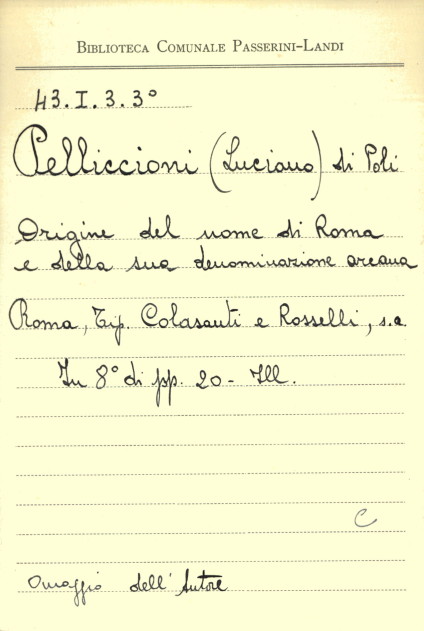 BIBLIOTECA COMUNALE PASSERINI-LANDI
43. I. 3. 3°
Pelliccioni (Luciano) di Poli
Origine del nome di Roma
e della sua denominazione arcana
Roma, Tip. Colasanti e Rosselli, s.a.
In 8° di pp. 20 - Ill.
C
Omaggio dell'Autore